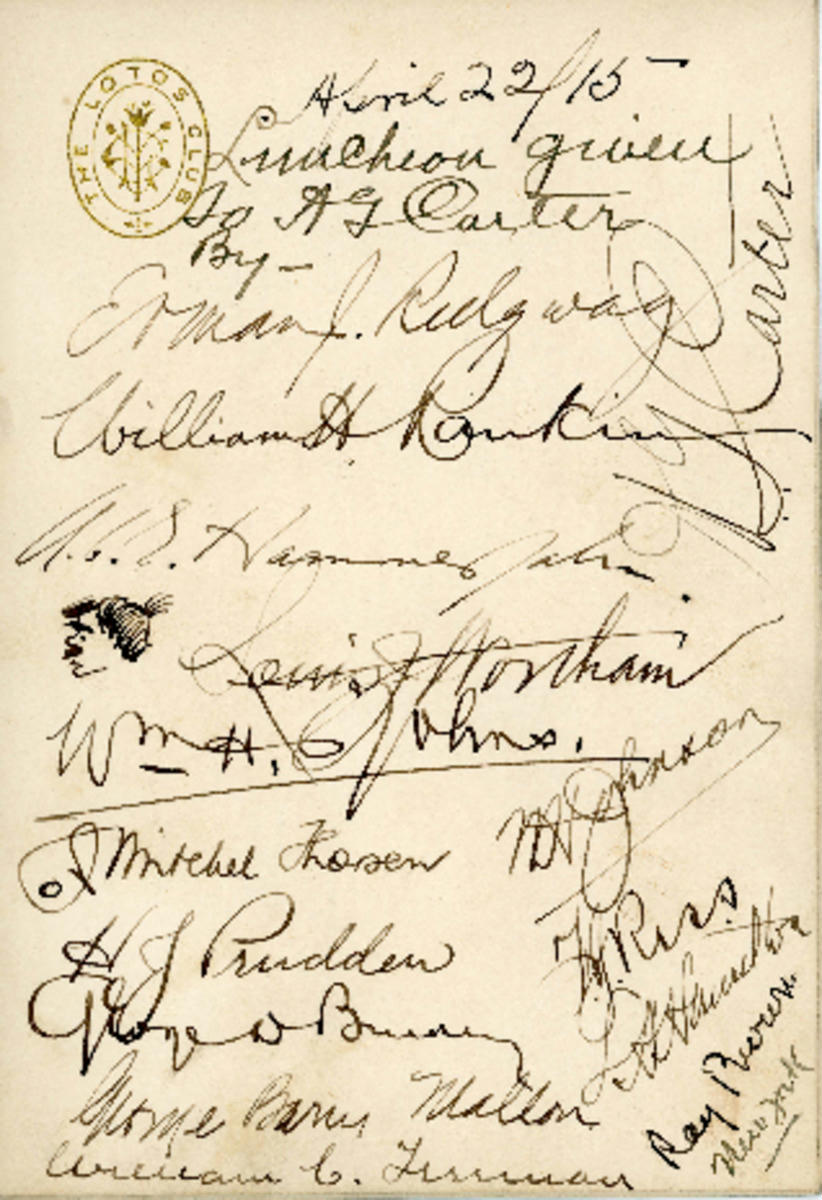 THE LOTOS CLUB
April 22/15
Luncheon given
To A G Carter
By-
Erman J. Ridgway
William H. Rankin
Carter
Louis J Wortham
Wm H. Johns.
Johnson
J Mitchel Thorsen
H J Prudden
George
George Barry Mallon
William C. Freeman
Ray Brown.
New York